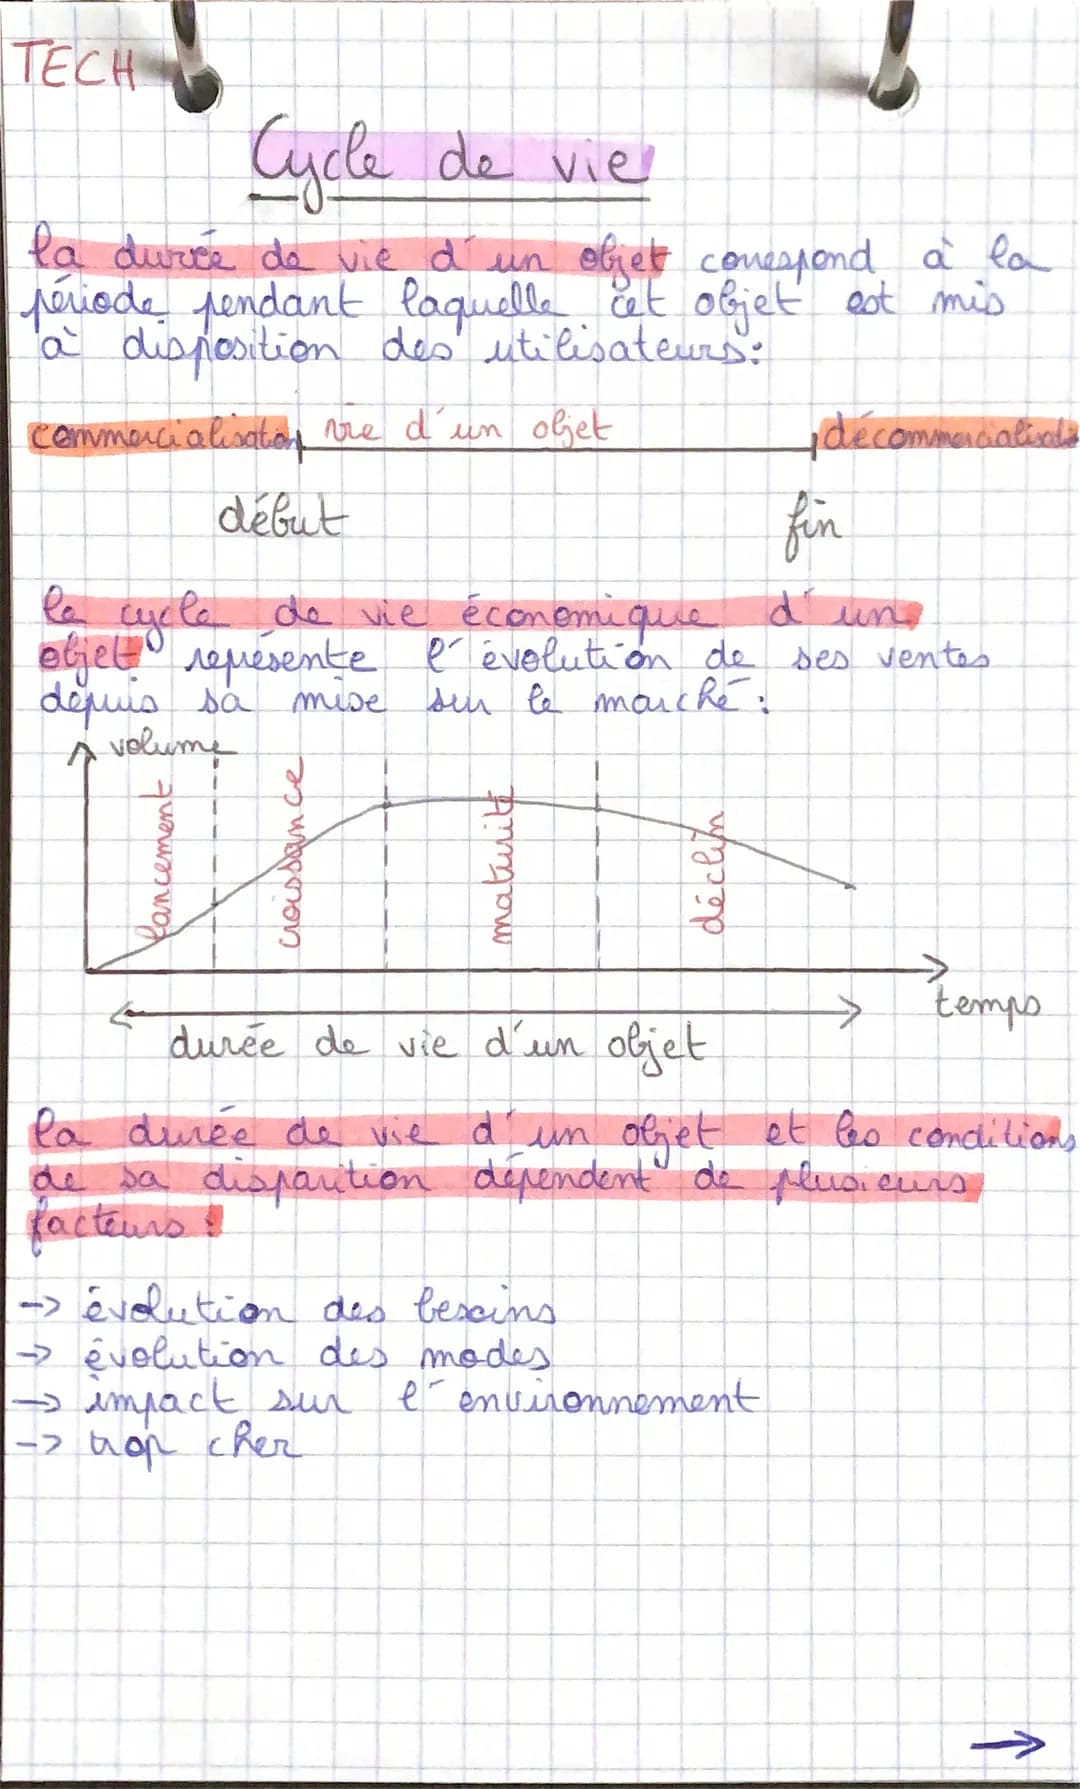 TECH
Cycle de vie
la durée de vie d'un objet correspond à la
période pendant laquelle cet objet est mis
à disposition des utilisateurs:
commercialisation vie d'un objet décommercialisati
début fin
le cycle de vie économique d'un
objet représente l'évolution de ses ventes
depuis sa mise sur le marché :
volume
lancement
croissance
maturité
déclin
temps
durée de vie d'un objet
la durée de vie d'un objet et les conditions
de sa disparition dépendent de plusieurs
facteurs :
-> évolution des besoins
-> évolution des modes
-> impact sur l'environnement
-> trop cher